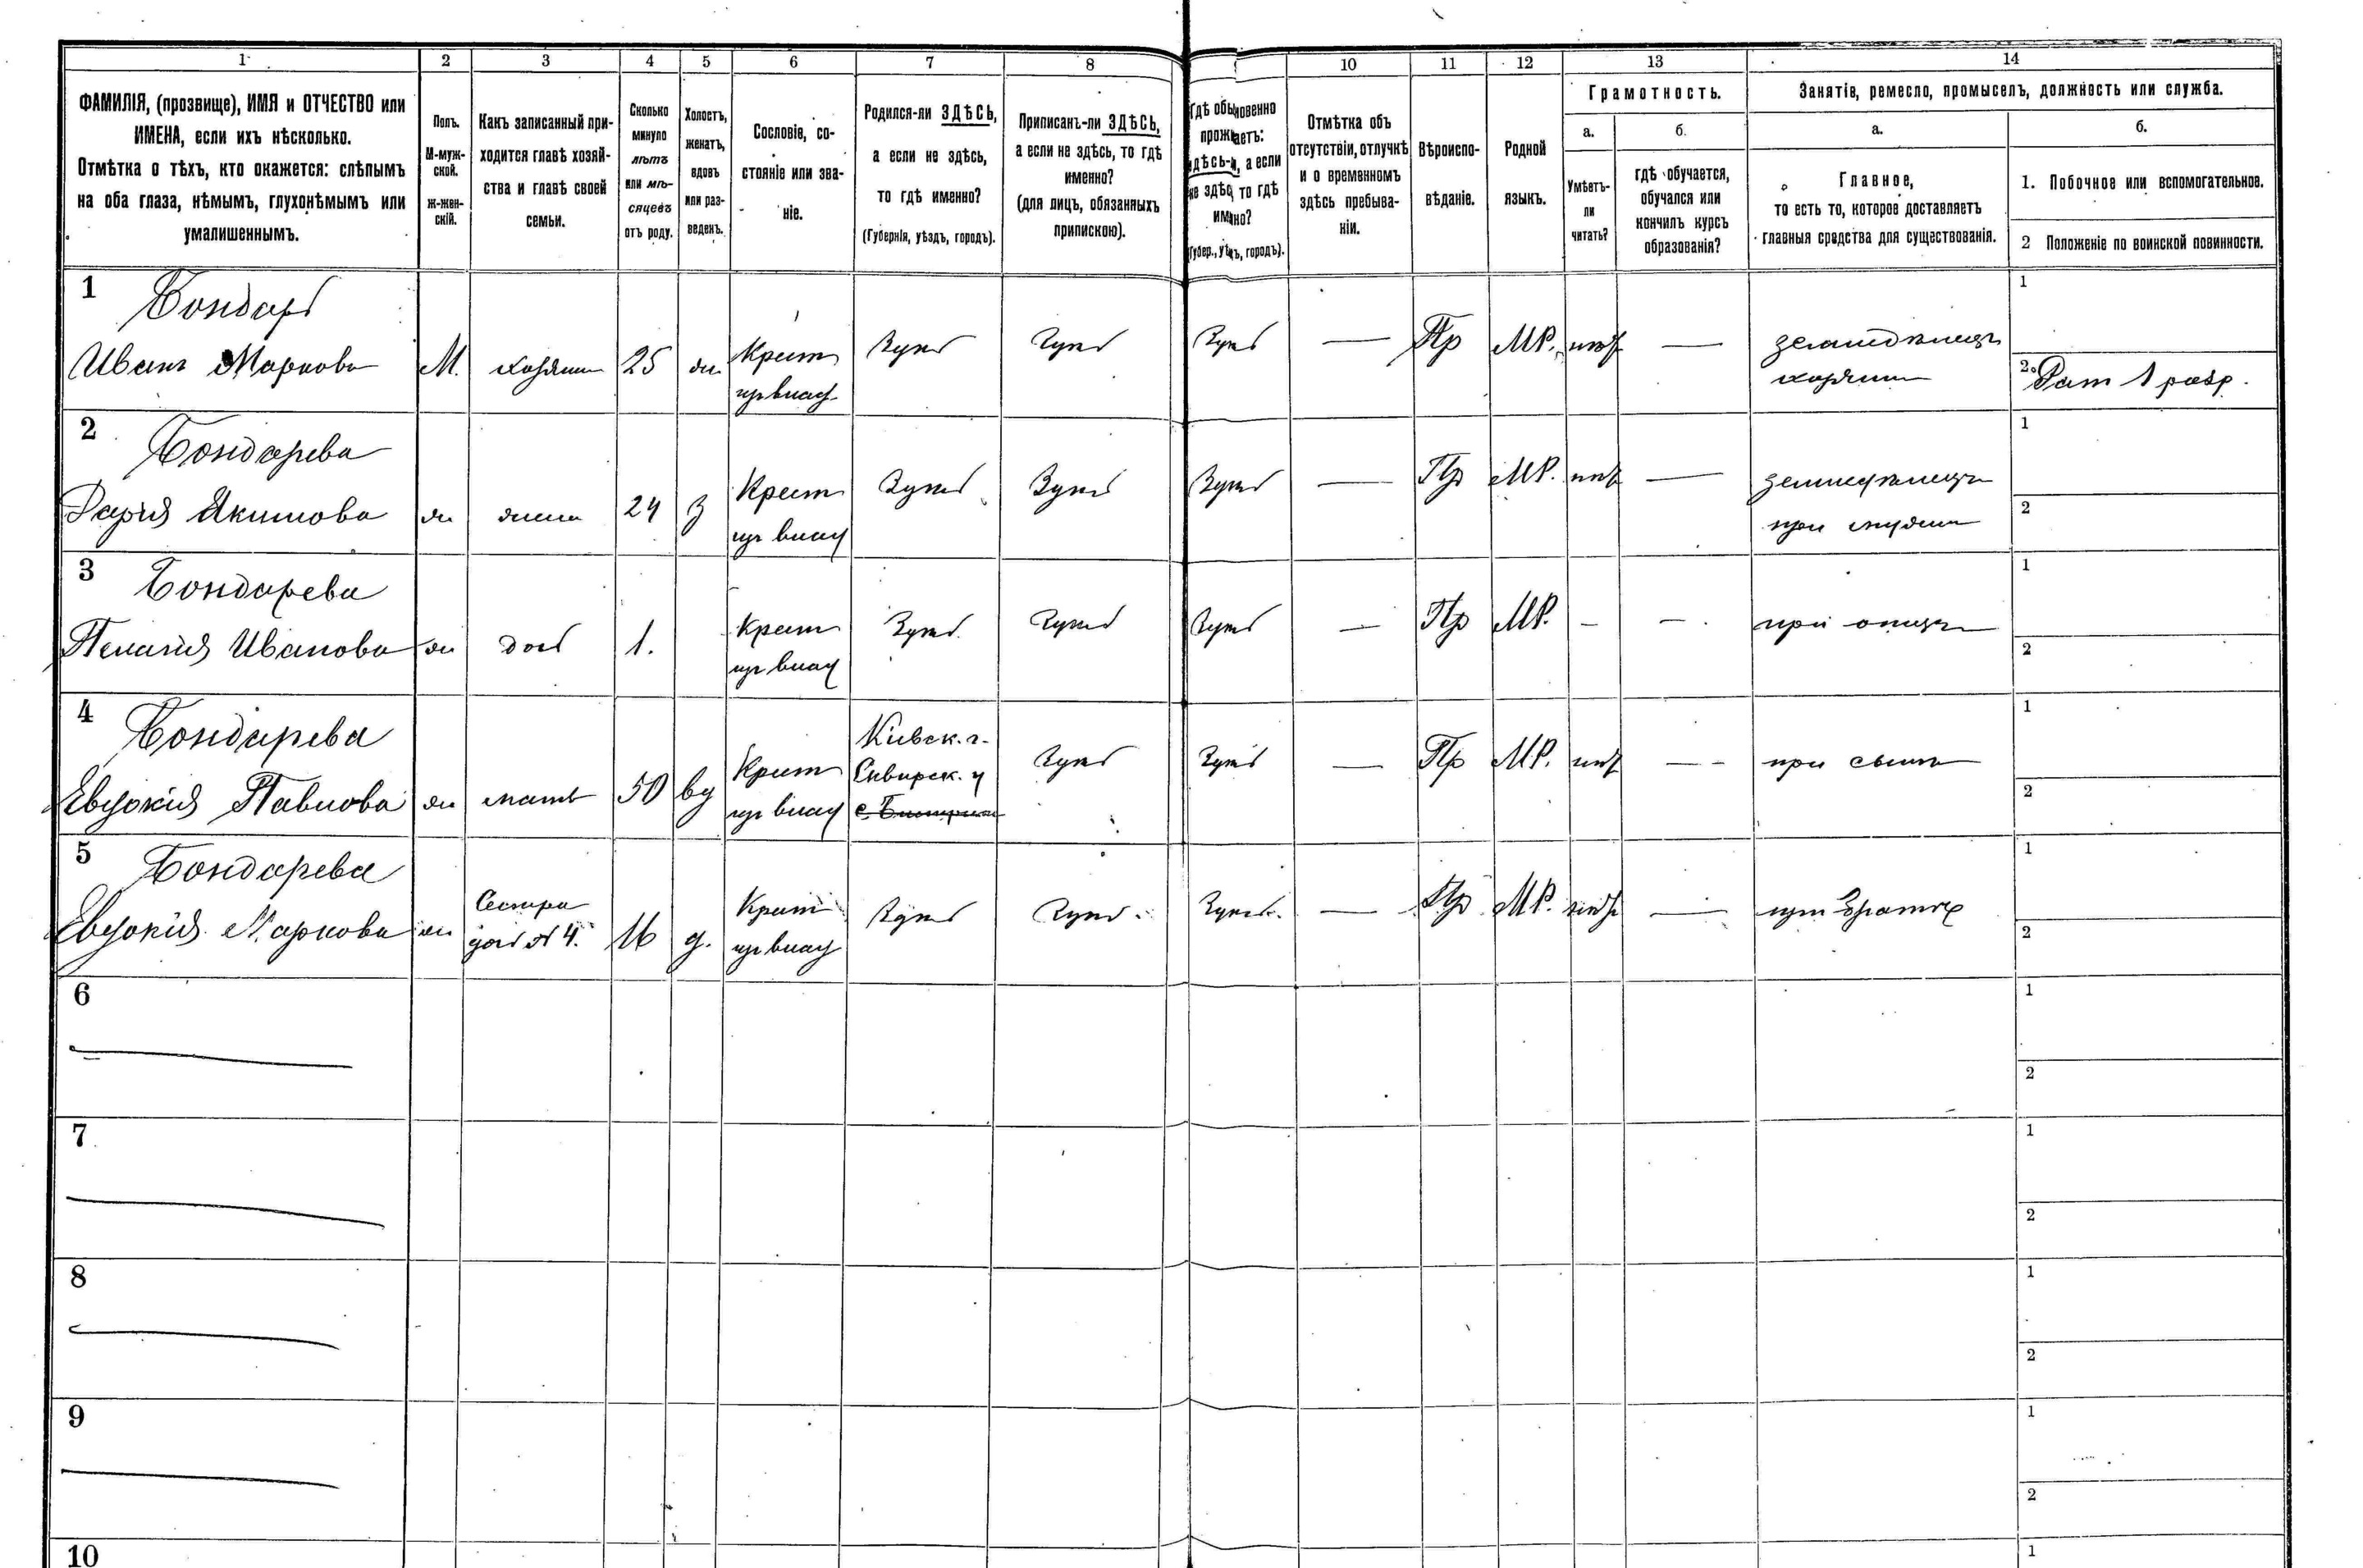 1 2 3 4 5 6 7 8 10 11 12 13 14
ФАМИЛІЯ, (прозвище), ИМЯ и ОТЧЕСТВО или
ИМЕНА, если ихъ нѣсколько.
Отмѣтка о тѣхъ, кто окажется: слѣпымъ
на оба глаза, нѣмымъ, глухонѣмымъ или
умалишеннымъ.
Полъ.
М-муж-
ской.
ж-жен-
скій.
Какъ записанный при-
ходится главѣ хозяй-
ства и главѣ своей
семьи.
Сколько
минуло
лѣтъ
или мѣ-
сяцевъ
отъ роду.
Холостъ,
женатъ,
вдовъ
или раз-
веденъ.
Сословіе, со-
стояніе или зва-
ніе.
Родился-ли ЗДѢСЬ,
а если не здѣсь,
то гдѣ именно?
(Губернія, уѣздъ, городъ).
Приписанъ-ли ЗДѢСЬ,
а если не здѣсь, то гдѣ
именно?
(для лицъ, обязанныхъ
припискою).
Гдѣ обыновенно
прожаетъ:
здѣсь-и, а если
не здѣс, то гдѣ
имено?
Губер., уѣъ, городъ).
Отмѣтка объ
отсутствіи, отлучкѣ
и о временномъ
здѣсь пребыва-
ніи.
Вѣроиспо-
вѣданіе.
Родной
языкъ.
Грамотность.
а.
Умѣетъ-
ли
читать?
б.
гдѣ обучается,
обучался или
кончилъ курсъ
образованія?
Занятіе, ремесло, промыселъ, должность или служба.
а.
Главное,
то есть то, которое доставляетъ
главныя средства для существованія.
б.
1. Побочное или вспомогательное.
2 Положеніе по воинской повинности.
1 Бондарь
Иванъ Маркова М. хозяин 25 ж Крест Здѣсь Здѣсь Здѣсь — Пр МР. нѣт — земледѣлецъ
из влад хозяин
1
2. Рат 1 разр.
2 Бондарева
Дарія Якимова ж жена 24 з Крест Здѣсь Здѣсь Здѣсь — Пр МР. нѣт — земледѣлецъ
из влад при мужѣ
1
2
3 Бондарева
Пелагія Иванова ж доч 1. Крест Здѣсь Здѣсь Здѣсь — Пр МР. - - при отцѣ
из влад
1
2
4 Бондарева
Евдокія Павлова ж мать 50 вд Крест Кіевск. г. Здѣсь Здѣсь — Пр МР. нѣт — при сынѣ
из влад Сквирск. у
1
2
5 Бондарева
Евдокія Маркова ж Сестра 16 д. Крест Здѣсь Здѣсь Здѣсь — Пр МР. нѣт — при братѣ
доч № 4. из влад
1
2
6
1
2
7
1
2
8
1
2
9
1
2
10
1